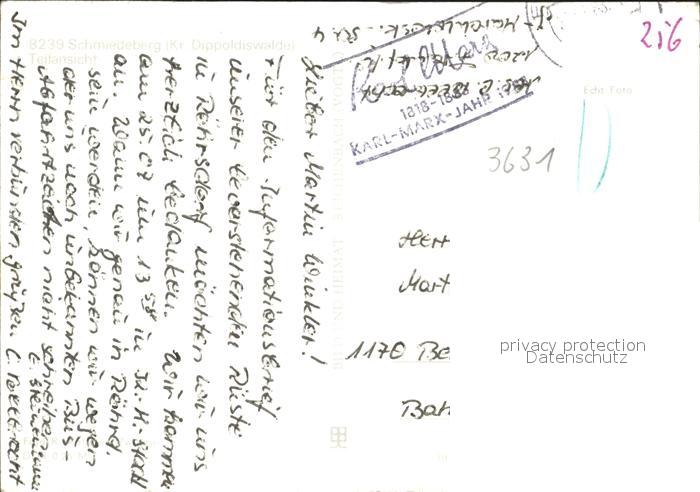 8239 Schmiedeberg (Kr. Dippoldiswalde)
Teilansicht
Lieber Martin Winkler!
Für den Informationsbrief
unserer bevorstehenden Rüste
in Röhrsdorf möchten wir uns
herzlich bedanken. Wir kommen
am 25.07 um 13 58 in K.-M.-Stadt
an. Wann wir genau in Röhrsd.
sein werden, können wir wegen
der uns noch unbekannten Bus-
Abfahrtzeichen nicht schreiben.
Im Herrn verbunden grüßen
1818-1883
KARL-MARX-JAHR
Echt Foto
256
3631
Herr
Mart
1170 Be
Bah
privacy protection
Datenschutz